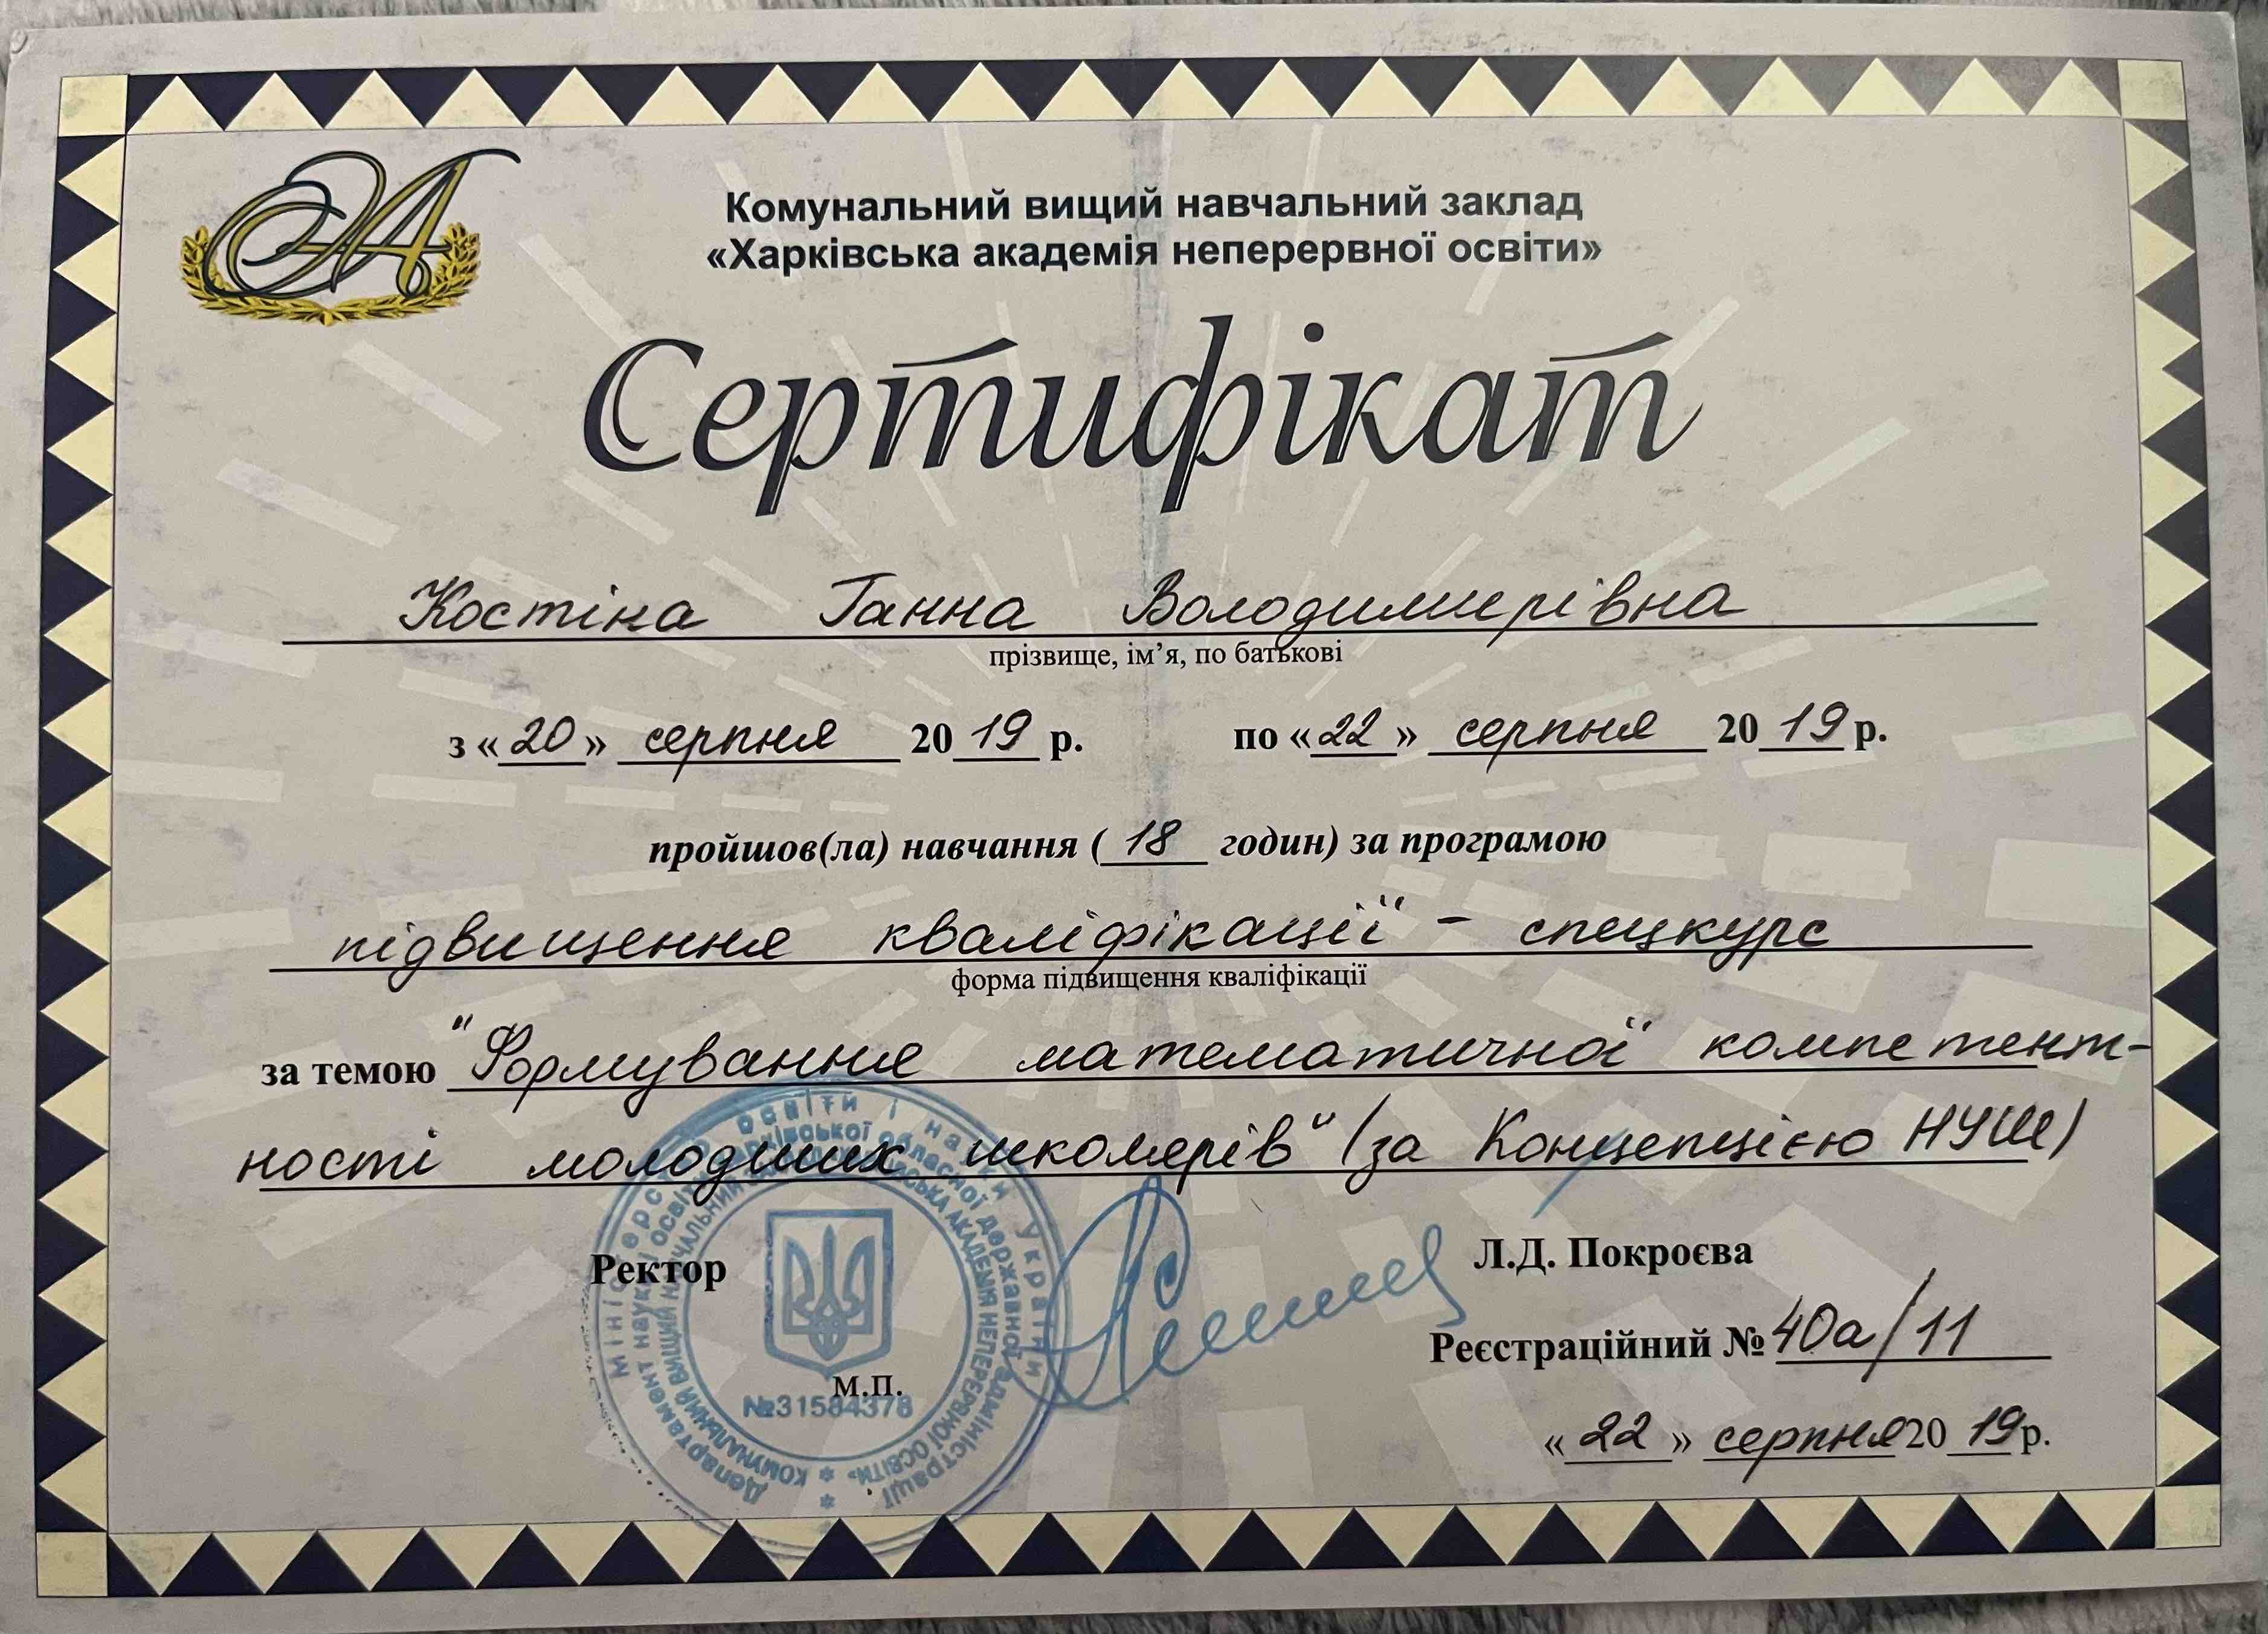 Комунальний вищий навчальний заклад
«Харківська академія неперервної освіти»
Сертифікат
Костіна Ганна Володимирівна
прізвище, ім’я, по батькові
з «20» серпня 2019 р. по «22» серпня 2019 р.
пройшов(ла) навчання (18 годин) за програмою
підвищення кваліфікації - спецкурс
форма підвищення кваліфікації
за темою "Формування математичної компетент-
ності молодших школярів" (за Концепцією НУШ)
Ректор Л.Д. Покроєва
Реєстраційний № 40а/11
м.п.
«22» серпня 2019 р.
Міністерство освіти і науки України
Департамент науки і освіти Харківської обласної державної адміністрації
КОМУНАЛЬНИЙ ВИЩИЙ НАВЧАЛЬНИЙ ЗАКЛАД «ХАРКІВСЬКА АКАДЕМІЯ НЕПЕРЕРВНОЇ ОСВІТИ»
№31584378